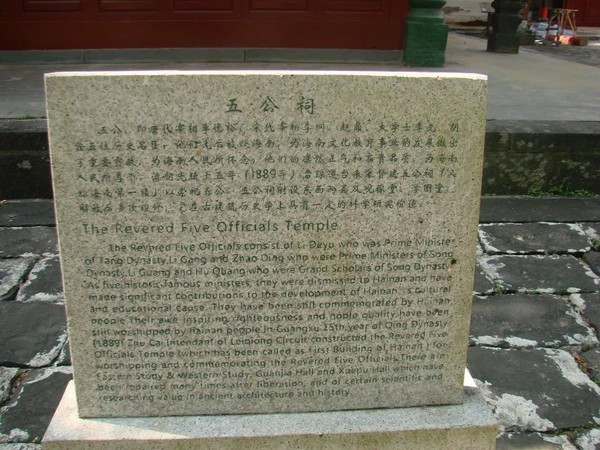 五公祠
五公，即唐代宰相李德裕，宋代宰相李纲、赵鼎，大学士李光、胡
铨五位历史名臣，他们先后被贬海南，为海南文化教育事业的发展做出
了重要贡献，为海南人民所怀念，他们的凛然正气和高贵品质，为海南
人民所景仰。清朝光绪十五年(1889年)，雷琼道台朱采督建五公祠(又
称海南第一楼)以祭祀五公。五公祠附设东西两斋及观稼堂、学圃堂，
解放后多次维修，它在古建筑历史学上具有一定的科学研究价值。
The Revered Five Officials Temple
The Revered Five Officials consist of Li Deyu who was Prime Minister
of Tang Dynasty, Li Gang and Zhao Ding who were Prime Ministers of Song
Dynasty, Li Guang and Hu Quang who were Grand Scholars of Song Dynasty.
As five historic famous ministers, they were dismissed to Hainan and have
made significant contributions to the development of Hainan is cultural
and educational cause. They have been still commemorated by Hainan
people. Their awe inspiring righteousness and noble quality have been
still worshipped by Hainan people. In Guangxu 15th year of Qing Dynasty
(1889) Zhu Cai Intendant of Leiqiong Circuit constructed the Revered Five
Officials Temple (which has been called as First Building of Hainan) for
worshipping and commemorating the Revered Five Officials. There are
Eastern Study & Western Study, Guanjia Hall and Xuepu Hall which have
been repaired many times after liberation, and of certain scientific and
researching value in ancient architecture and history.